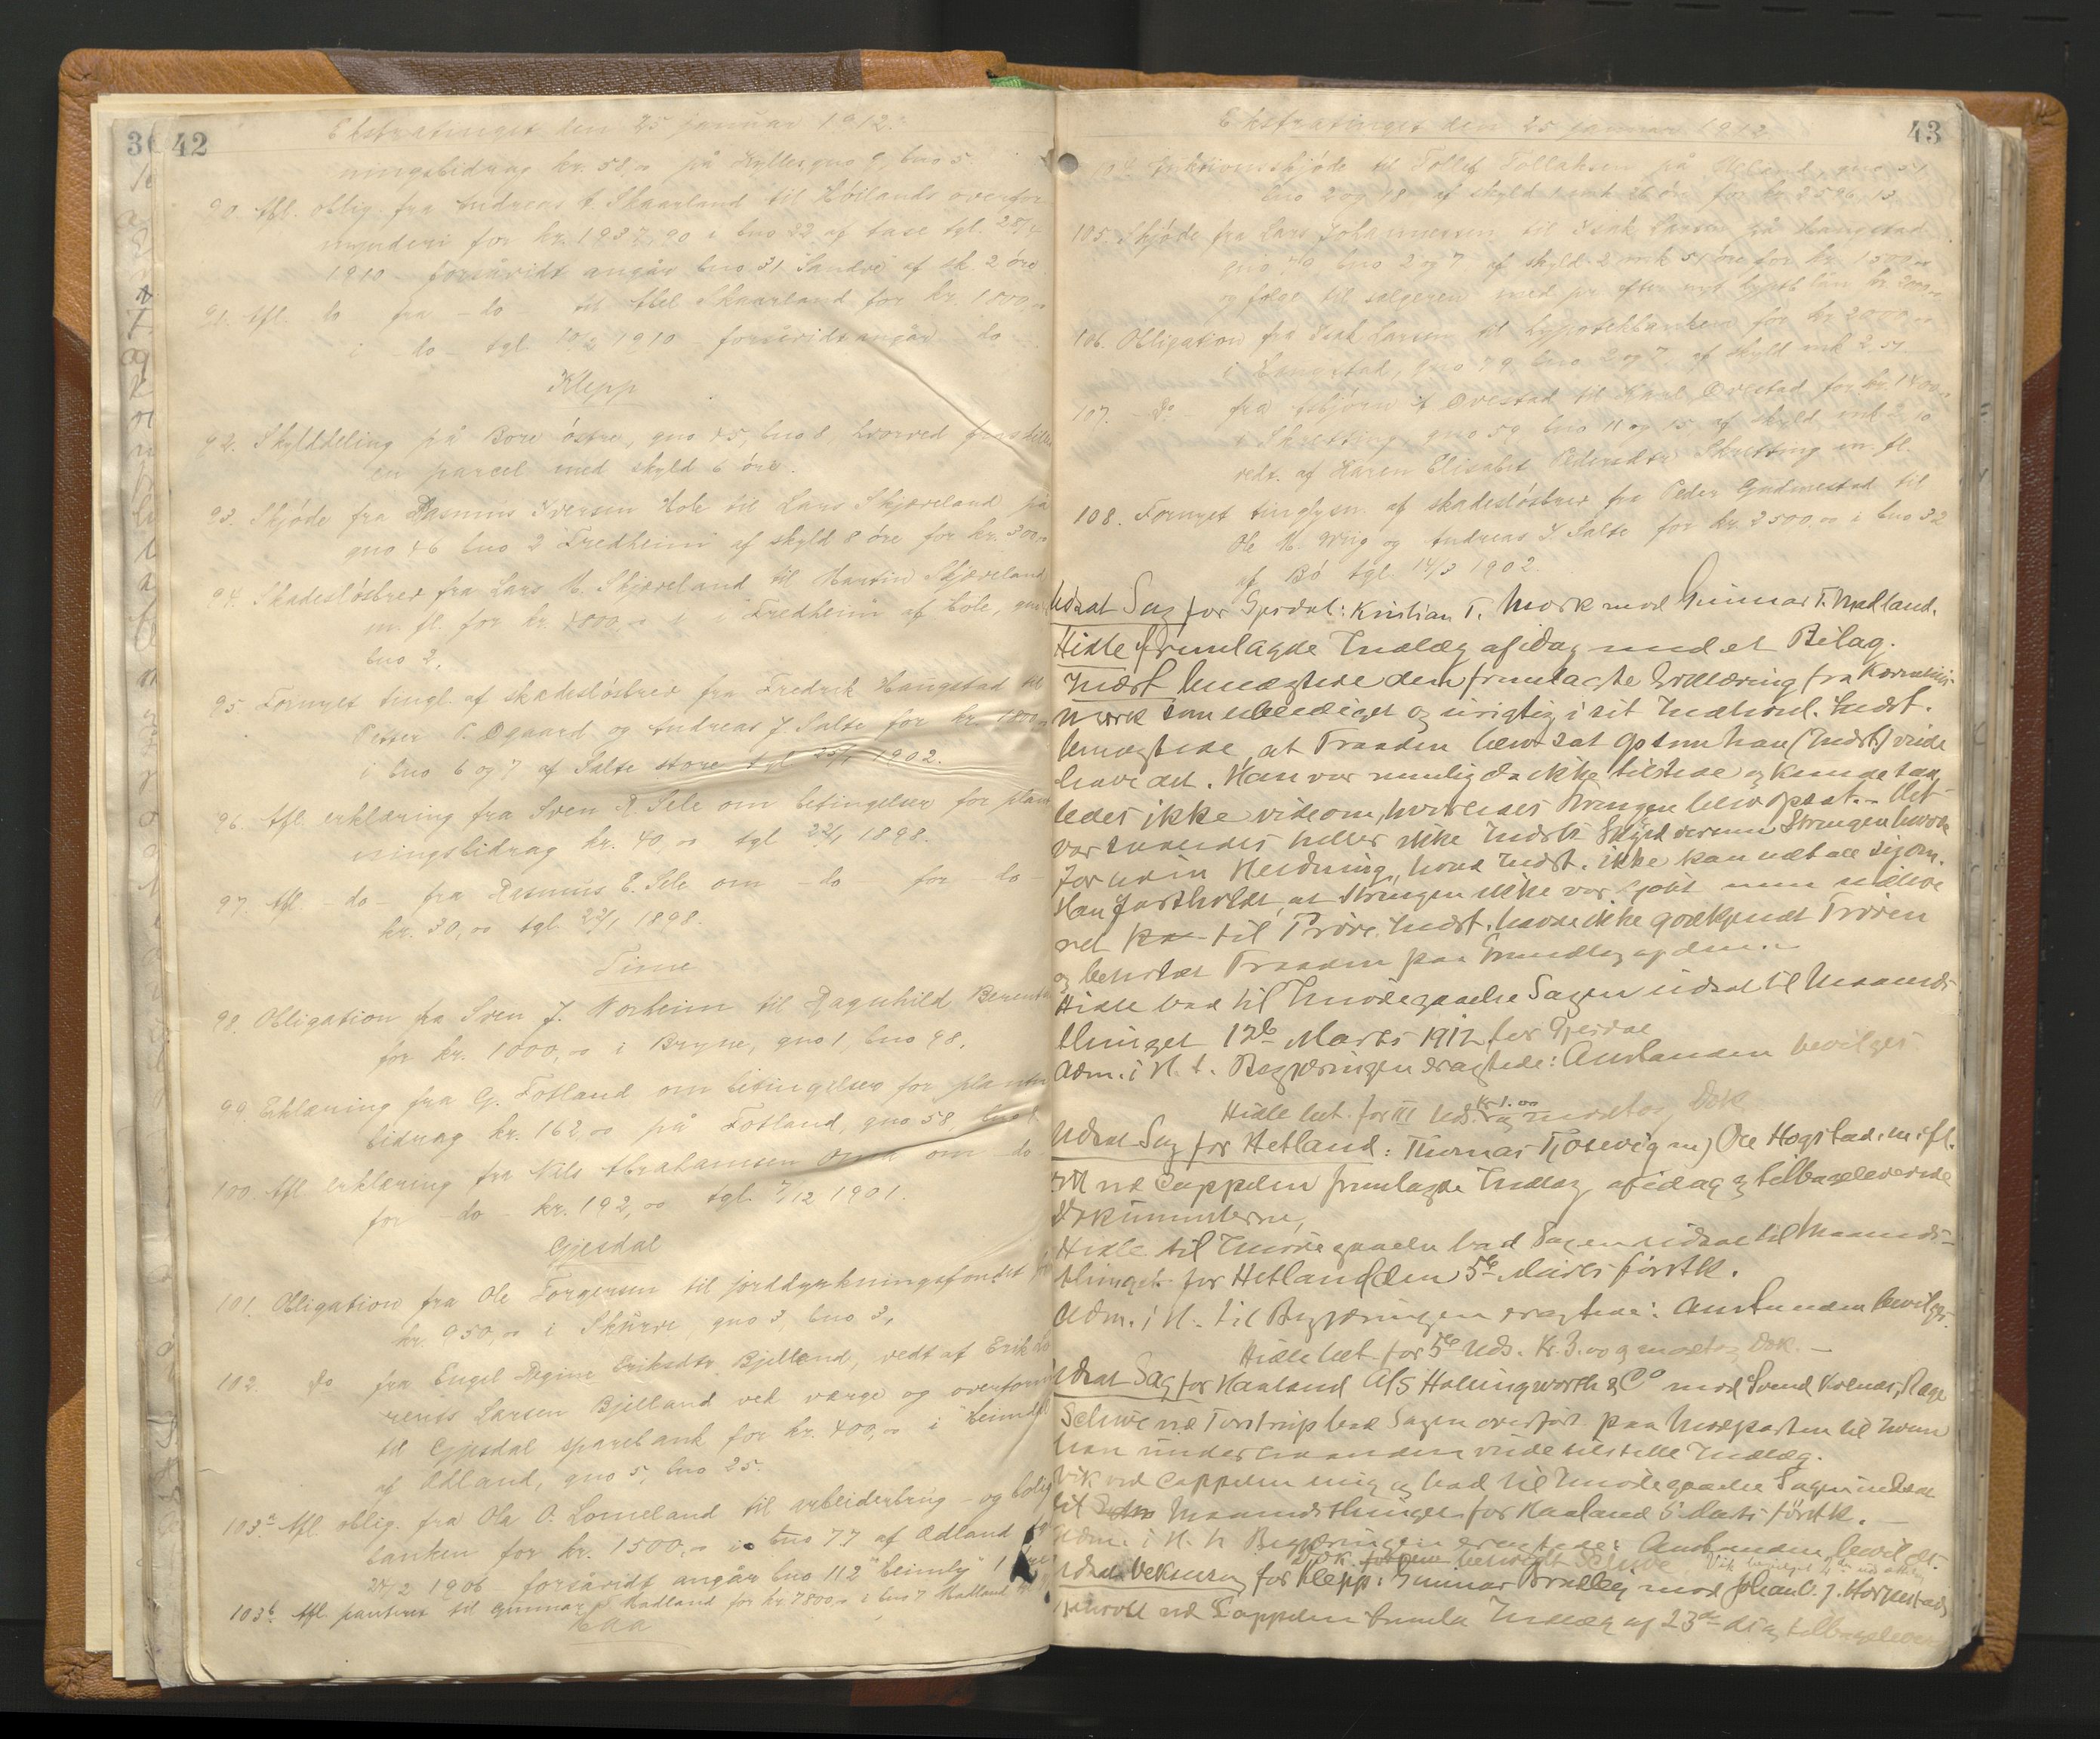 42
Ekstratinget den 25 januar 1912.
ningsbidrag kr. 58,00 på Kylles, gno 9, bno 5.
90. Afl. oblig. fra Andreas T. Skaarland til Høilands overfor-
mynderi for kr. 1937,90 i bno 22 af Lase tgl. 28/4
1910 forsåvidt angår bno 31 "Sandve" af sk. 2 øre
91. Afl. do fra - do - til Abel Skaarland for kr. 1800,00
i do tgl. 10/2 1910 - forsåvidt angår do
Klepp
92. Skylddeling på Bore østre, gno 15, bno 8, hvorved fraskilles
en parcel med skyld 6 øre.
93. Skjøde fra Rasmus Iversen Hole til Lars Skjæveland på
gno 46 bno 2 "Fredheim" af skyld 8 øre for kr. 300,00
94. Skadesløsbrev fra Lars M. Skjæveland til Martin Skjæveland
m. fl. for kr. 4000,00 i "Fredheim" af Hole, gno
bno 2.
95. Fornyet tingl. af skadesløsbrev fra Fredrik Haugstad til
Petter P. Øgaard og Andreas J. Salte for kr. 1800,00
i bno 6 og 7 af Salte store tgl 25/1 1902.
96. Afl. erklæring fra Sven R. Sele om betingelser for plant-
ningsbidrag kr. 40,00 tgl 22/1 1898.
97. Afl. - do - fra Rasmus E. Sele om - do - for - do -
kr. 30,00 tgl. 22/1 1898.
Time
98. Obligation fra Sven J. Norheim til Ragnhild Berents
for kr. 1000,00 i Bryne, gno 1, bno 98.
99. Erklæring fra G. Fotland om betingelser for plantn
bidrag kr. 162,00 på Fotland, gno 58,
100. Afl. erklæring fra Nils Abrahamsen Oma om - do -
for - do - kr. 192,00 tgl. 7/12 1901.
Gjesdal
101. Obligation fra Ole Torgersen til jorddyrkningsfondet for
kr. 950,00 i Skurve, gno 3, bno 3,
102. Do fra Engel Regine Eriksdtr. Bjelland, vedt. af Erik
Larsen Bjelland ved værge og overform
til Gjesdal sparebank for kr. 400,00 i "Heimdal"
af Ådland, gno 5, bno 25.
103a Afl. oblig. fra Ola O. Lomeland til arbeiderbrug - og bolig
banken for kr. 1500,00 i bno 77 af Ådland
24/2 1906 forsåvidt angår bno 112 "Heimly"
103b. Afl. pantret til Gunnar P. Madland for kr. 7800,00 i bno 7 Madland
Haa
43
Ekstratinget den 25 januar 1912
104. Auktionsskjøde til Tollef Tollaksen på gno 31
bno 2 og 18 af skyld 1 mk 26 øre for kr 2596,13
105. Skjøde fra Lars Johannessen til Isak Larsen på Haugstad
gno 79, bno 2 og 7 af skyld 2 mk 51 øre for kr. 1500,00
og følge til sælgeren med pr. efter nyt hypotb. lån kr. 2000,00
106. Obligation fra Isak Larsen til hypotekbanken for kr 2000,00
i Haugstad, gno 79 bno 2 og 7, af skyld mk 2.51.
107. - Do - fra Asbjørn Ovestad til Karl Ovestad for kr. 1400,00
i Skretting, gno 59 bno 11 og 15 af skyld mk 2.10
vedt. af Karen Elisabet Pedersdtr Skretting m. fl.
108. Fornyet tinglysn. af skadesløsbrev fra Peder Gudmestad til
Ole M. Wiig og Andreas J Salte for kr. 2500,00 i bno 32
af Bø tgl. 14/3 1902.
Udsat Sag for Gjesdal: Kristian T. Mork mod Gunnar T. Madland.
Hidle fremlagde Indlæg af idag med et Bilag.
Indst. benægtede den fremlagte Erklæring fra
Mork som ubeediget og urigtig i sit Indhold. Indst.
benægtede, at Traaden blev sat op som han (Indst) vilde
have det. Han var nemlig da ikke tilstede og kunde saa-
ledes ikke vide om, hvorledes Stringen blev opsat. - Det
var saaledes heller ikke Indsts Skyld derom Stringen havde
for liden Heldning, hvad Indst. ikke kan udtale sig om.
Han fastholdt, at Stringen ikke var kjøbt men udlove-
ret til Prøve. Indst. havde ikke godkjendt Prøven
og beholdt Traaden paa Grundlag af den.
Hidle bad til Imødegaaelse Sagen udsat til Maaneds-
thinget 12te Marts 1912 for Gjesdal
Adm. i H. t. Begjæringen eragtede: Anstanden bevilges
Hidle bet. for III Uds. Kr 1.00 og modtog Dok
Udsat Sag for Hetland: Thomas Tjosevig m) Ole Hogstad m. fl.
ved Cappelen fremlagde Indlæg af idag og tilbageleverede
Dokumenterne,
Hidle til Imødegaaelse bad Sagen udsat til Maaneds-
thinget for Hetland den 5te Marts førstk.
Adm. i H. til Begjæringen eragtede: Anstanden bevilges.
Hidle bet. for 5te Uds. Kr. 3.00 og modtog Dok. -
Udsat Sag for Haaland A/S Hollingworth & Co mod Svend Volnes, Rege
Schive ved Torstrup bad Sagen overført paa Modparten til hvem
han underhaanden vilde tilstille Indlæg.
Vik ved Cappelen enig og bad til Imødegaaelse Sagen udsat
til Maanedsthinget for Haaland 5 Marts førstk. -
Adm. i H. h. Begjæringen eragtede: Anstanden bevilget.
Dok.
Udsat Vekselsag for Klepp: Gunnar Braalleg mod Johan B. J. Horpestad
ved Cappelen fremla Indlæg af 23de ds og tilbagelever